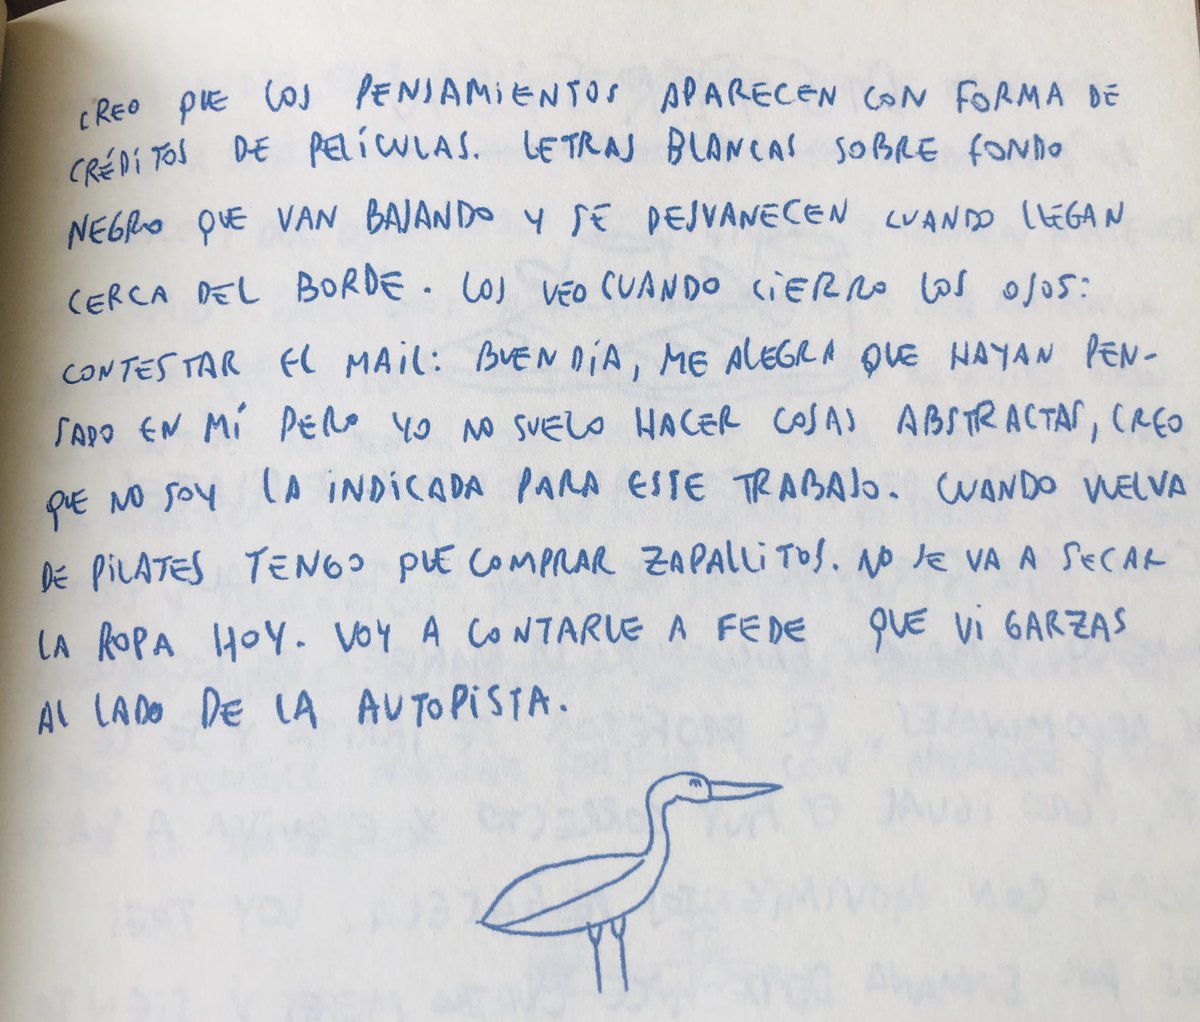 CREO QUE LOS PENSAMIENTOS APARECEN CON FORMA DE
CRÉDITOS DE PELÍCULAS. LETRAS BLANCAS SOBRE FONDO
NEGRO QUE VAN BAJANDO Y SE DESVANECEN CUANDO LLEGAN
CERCA DEL BORDE. LOS VEO CUANDO CIERRO LOS OJOS:
CONTESTAR EL MAIL: BUEN DÍA, ME ALEGRA QUE HAYAN PEN-
SADO EN MÍ PERO YO NO SUELO HACER COSAS ABSTRACTAS, CREO
QUE NO SOY LA INDICADA PARA ESTE TRABAJO. CUANDO VUELVA
DE PILATES TENGO QUE COMPRAR ZAPALLITOS. NO SE VA A SECAR
LA ROPA HOY. VOY A CONTARLE A FEDE QUE VI GARZAS
AL LADO DE LA AUTOPISTA.